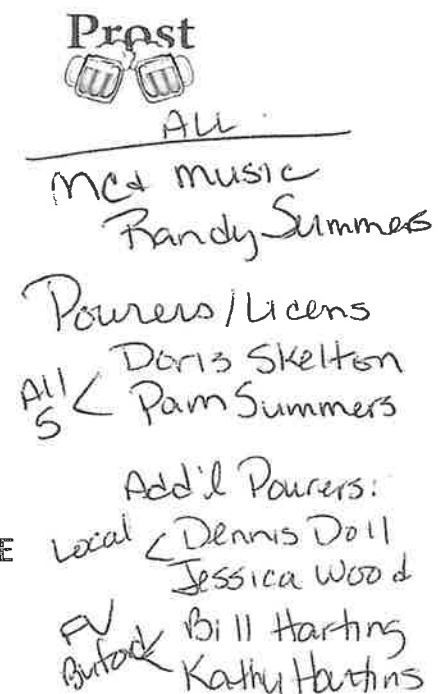 Prost
ALL
MC & Music
Randy Summers
Pourers/Licens
Doris Skelton
All 5 < Pam Summers
Add'l Pourers:
Local < Dennis Doll
Jessica Wood
E
FV Bill Harting
< Kathy Harting